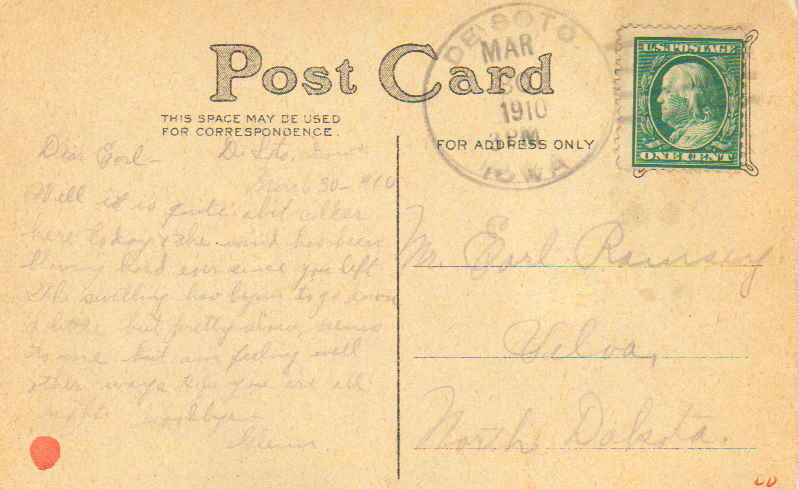 Post Card
THIS SPACE MAY BE USED
FOR CORRESPONDENCE.
FOR ADDRESS ONLY
DE SOTO
MAR
30
1910
3 PM
IOWA
U.S. POSTAGE
ONE CENT
Dear Earl - De Soto, Iowa
March 30 - #10
Well it is quite a bit cooler
here today & the wind has been
blowing hard ever since you left
The swelling has begun to go down
a little but pretty slow, seems
to me but am feeling well
other ways hope you are all
right. goodbye
Glenn
Mr. Earl Ramsey
Velva,
North Dakota.